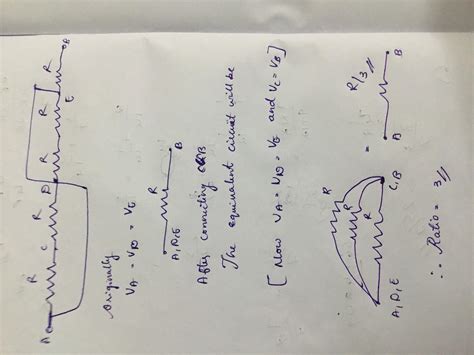 A R C R D R R E R B
Originally
VA = VD = VE
R
A,D,E B
After connecting C & B
The equivalent circuit will be
[ Now VA = VD = VE and VC = VB ]
R
R
R
A,D,E C,B
=
R/3
A B
∴ Ratio = 3